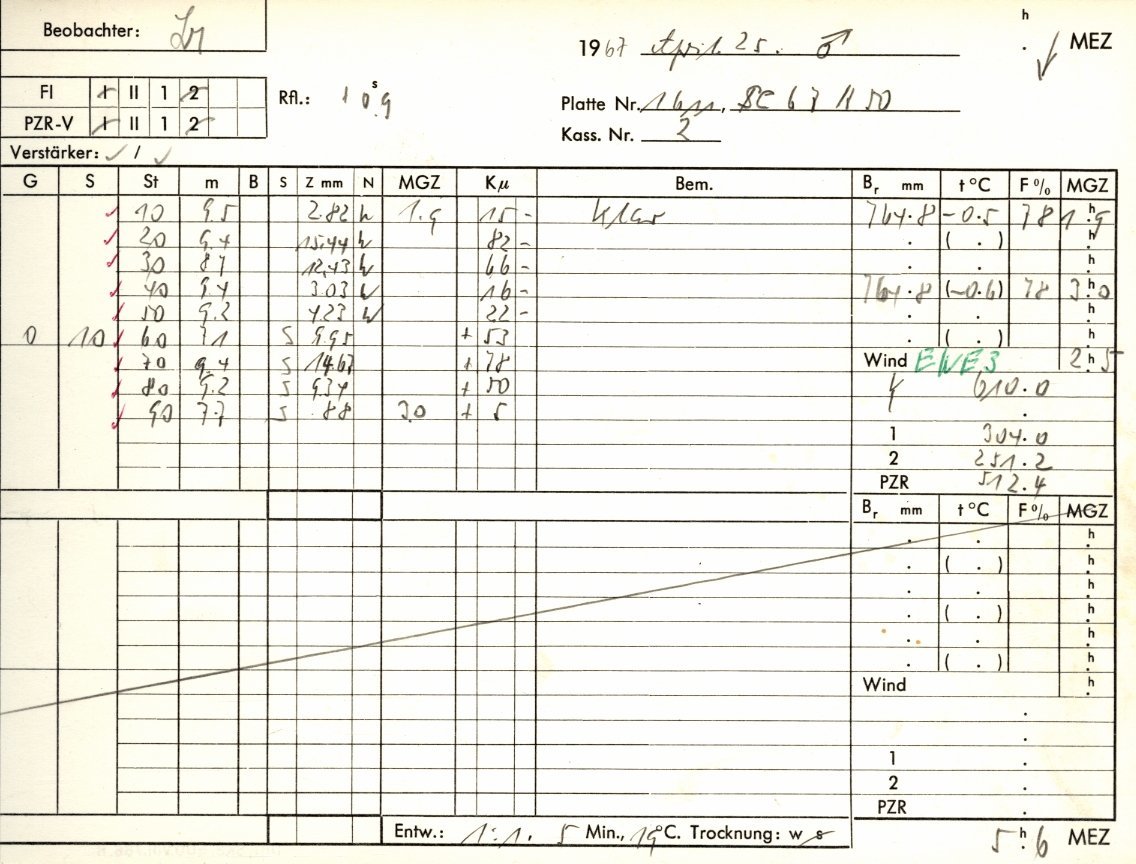 Beobachter:
h
1967 April 25. ♂ . MEZ
FI I II 1 2
Rfl.: 10.9 s
Platte Nr. 1611, SC 67 H 50
PZR-V I II 1 2
Kass. Nr. 2
Verstärker: ✓ / ✓
G S St m B S Z mm N MGZ Kμ Bem. Br mm t °C F % MGZ
✓ 10 9.5 2.82 N 1.9 15 - klar 764.8 -0.5 78 1.9 h
✓ 20 9.4 15.44 N 82 - . ( . ) h
✓ 30 8.7 12.43 N 66 - . . h
✓ 40 9.4 3.03 N 16 - 764.8 (-0.6) 78 3.0 h
✓ 50 9.2 4.23 N 22 - . . h
0 10 ✓ 60 7.1 S 9.95 + 53 . ( . ) h
✓ 70 9.4 S 14.67 + 78 Wind ENE3 2.5 h
✓ 80 9.2 S 9.34 + 50 610.0
✓ 90 7.7 S .88 3.0 + 5 .
1 304.0
2 251.2
PZR 512.4
Br mm t °C F % MGZ
. . h
. ( . ) h
. . h
. ( . ) h
. . h
. ( . ) h
Wind h
.
.
1 .
2 .
PZR .
Entw.: 1:1, 5 Min., 19°C. Trocknung: w s
5.6 h MEZ